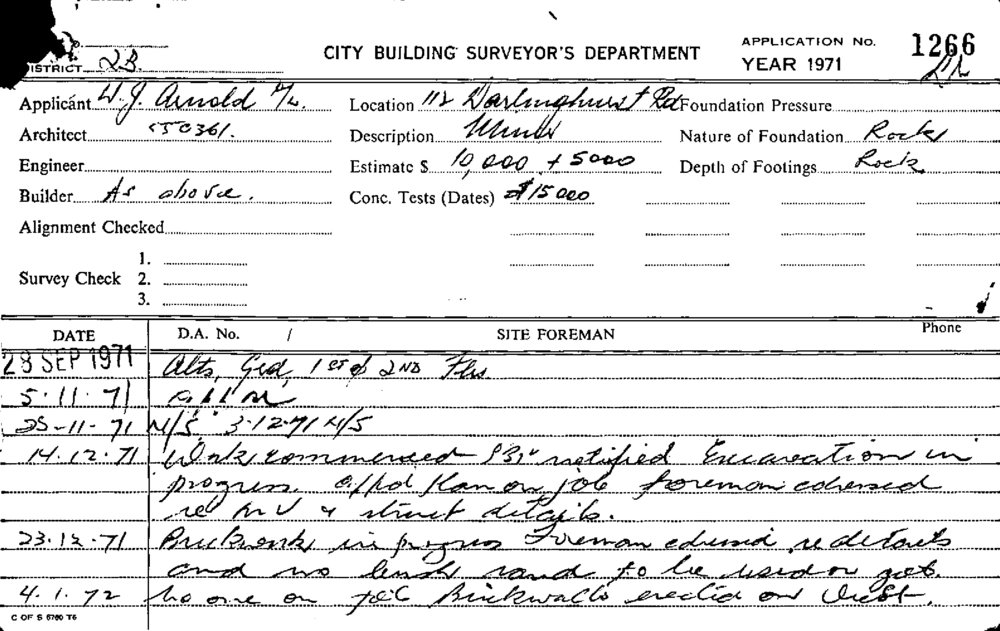 DISTRICT 2B.
CITY BUILDING SURVEYOR'S DEPARTMENT
APPLICATION No. 1266
YEAR 1971
Applicant W.J. Arnold P/L. Location 112 Darlinghurst Rd Foundation Pressure
Architect 550361. Description Minor Nature of Foundation Rock
Engineer Estimate $ 10,000 + 5000 Depth of Footings Rock
Builder As above. Conc. Tests (Dates) $15000
Alignment Checked
1.
Survey Check 2.
3.
DATE D.A. No. / SITE FOREMAN Phone
28 SEP 1971 Alts, Grd, 1st & 2ND Flrs
5.11.71
25-11-71 N/S 3.12.71 N/S
14.12.71 Work commenced notified Excavation in
progress. on job foreman advised
re & struct details.
23.12.71 Brickwork in progress Foreman advised re details
and no sand to be used on job.
4.1.72 No one on job Brickwalls erected on West.
C OF S 5760 T6